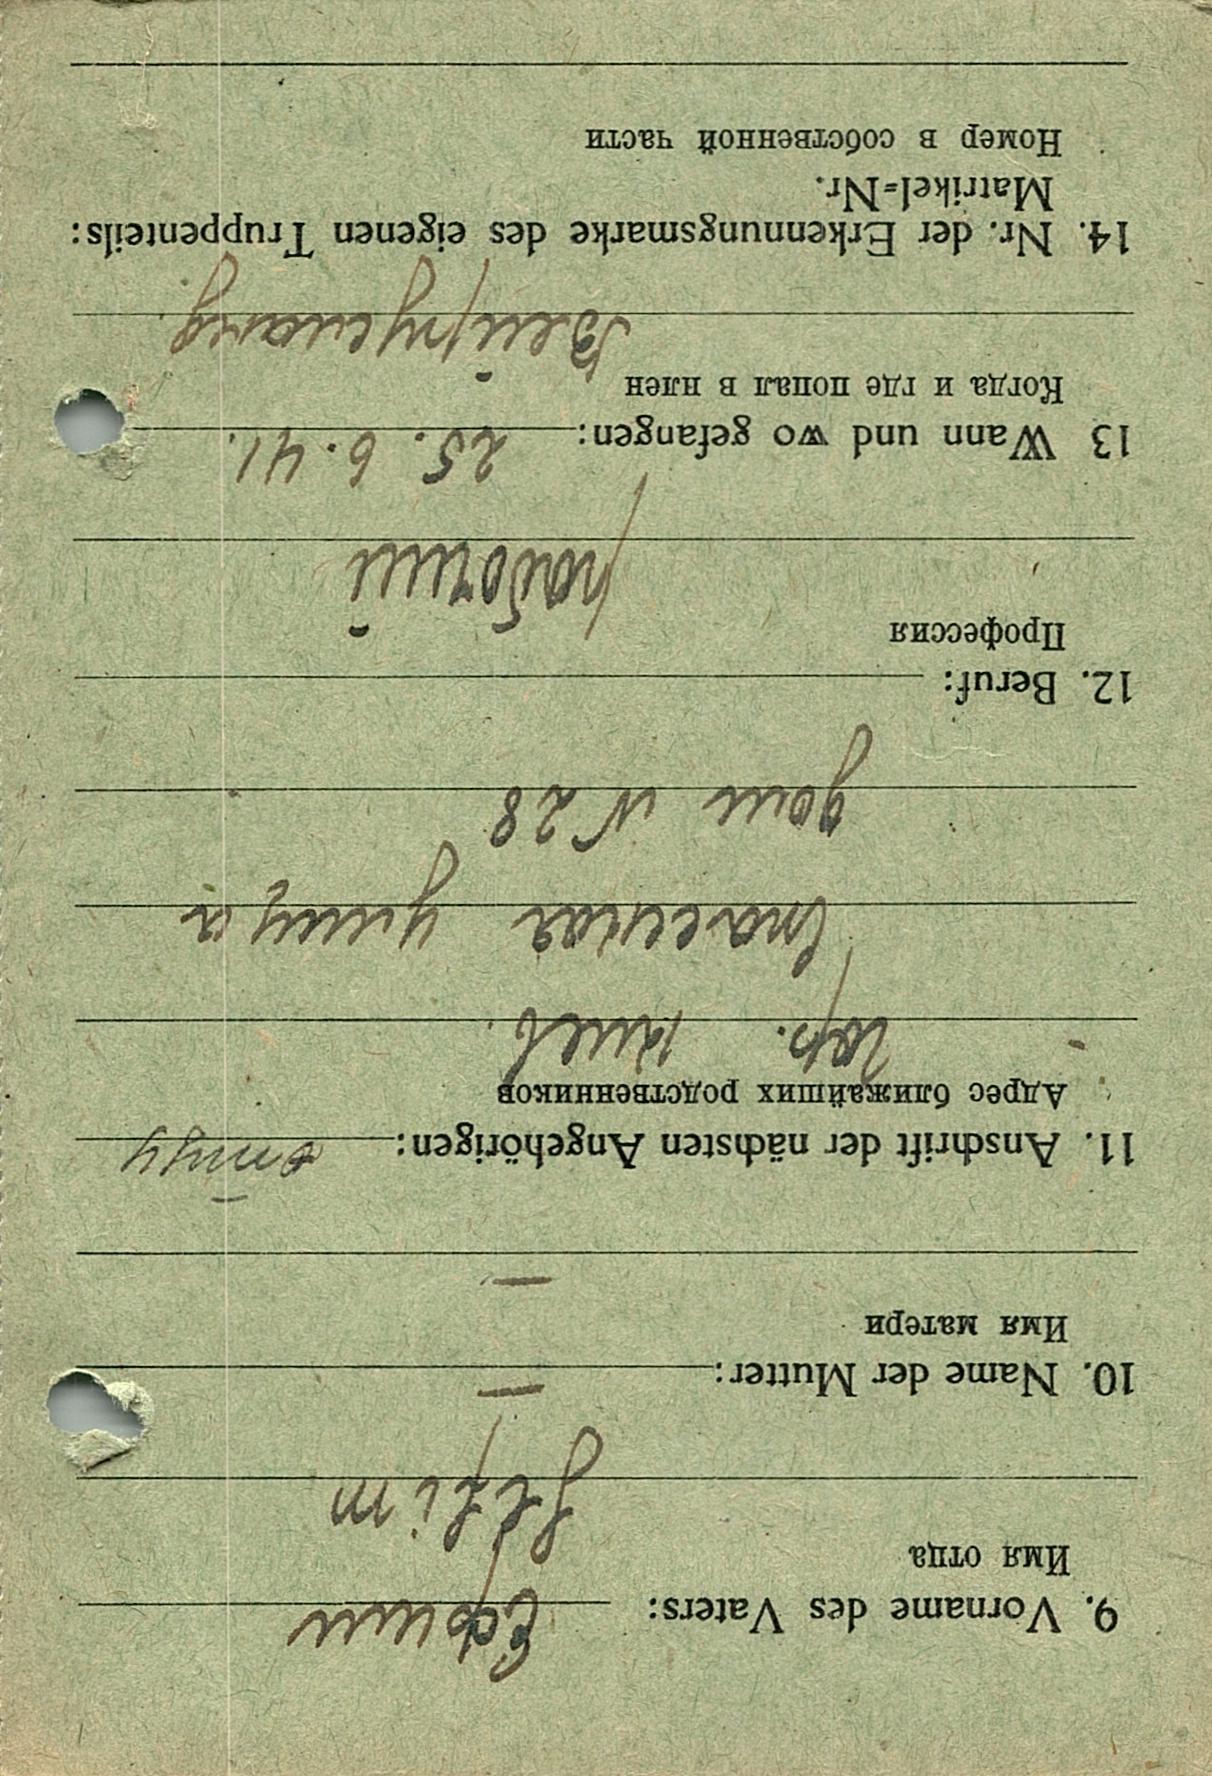 9. Vorname des Vaters: Ефим
Имя отца
Jefim
10. Name der Mutter: —
Имя матери
—
11. Anschrift der nächsten Angehörigen: отцу
Адрес ближайших родственников
гор. Киев.
Спасская улица
дом N 28
12. Beruf:
Профессия
рабочий
13 Wann und wo gefangen: 25. 6. 41.
Когда и где попал в плен
14. Nr. der Erkennungsmarke des eigenen Truppenteils:
Matrikel=Nr.
Номер в собственной части